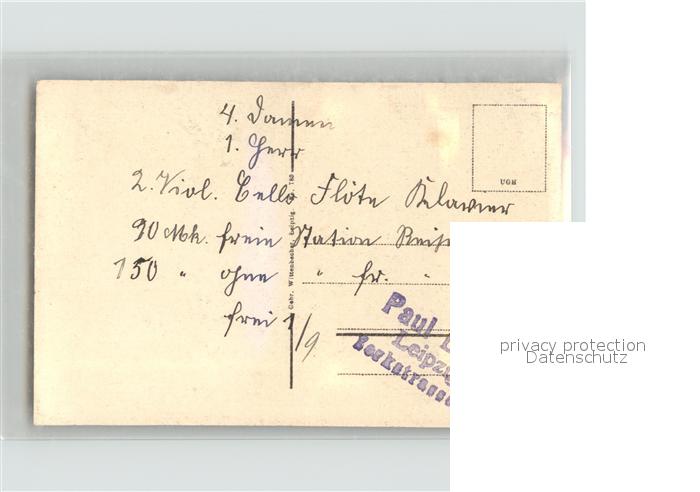 4. Damen
1. Herr
2. Viol. Cello Flöte Klavier
90 Mk. freie Station Reise
150 " ohne " fr. "
frei 1/9
Gebr. Wittenbecher, Leipzig.
Paul
Leipz
strasse
privacy protection
Datenschutz